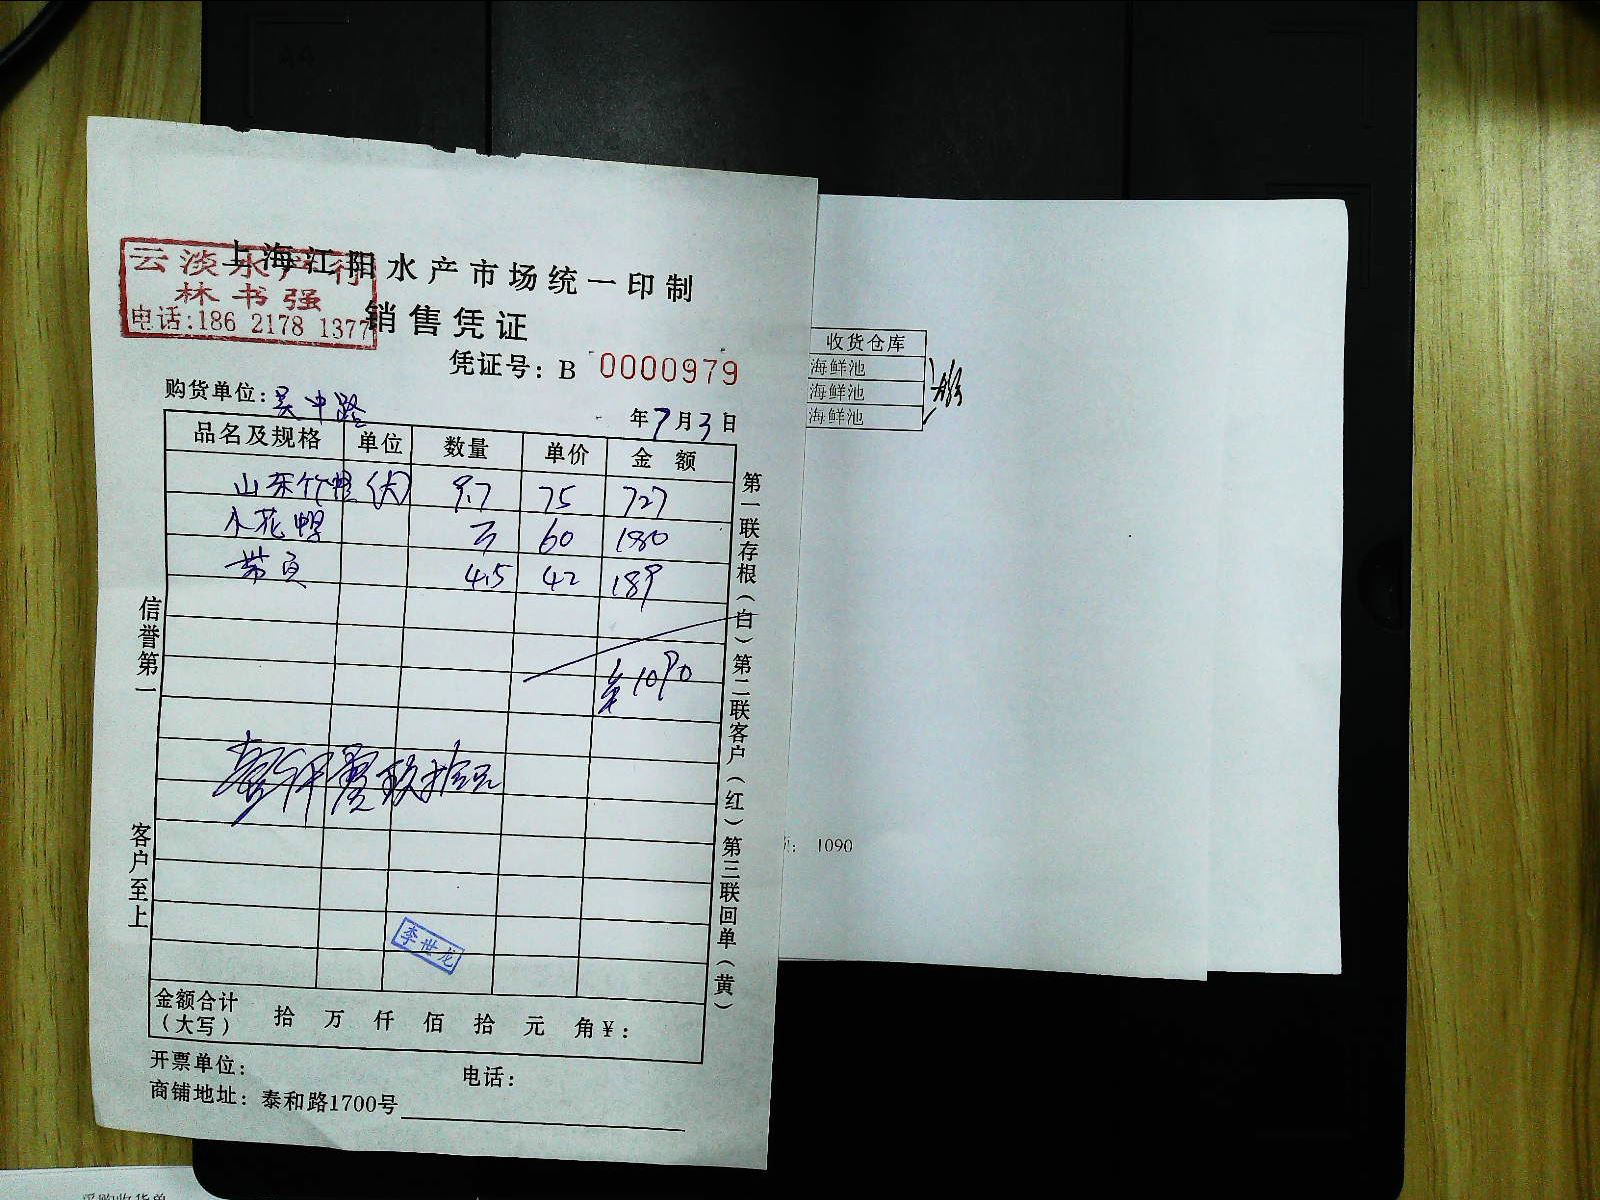 上海江阳水产市场统一印制
云淡水产行
林书强
电话:186 2178 1377
销售凭证
凭证号: B 0000979
购货单位: 吴中路
年 7 月 3 日
品名及规格 单位 数量 单价 金额
山东竹蛏(大) 9.7 75 727
三 60 180
4.5 42 189
1090
信誉第一
客户至上
李世龙
第一联存根(白)第二联客户(红)第三联回单(黄)
金额合计(大写) 拾 万 仟 佰 拾 元 角 ¥:
开票单位:
电话:
商铺地址: 泰和路1700号
收货仓库
海鲜池
海鲜池
海鲜池
1090
采购收货单